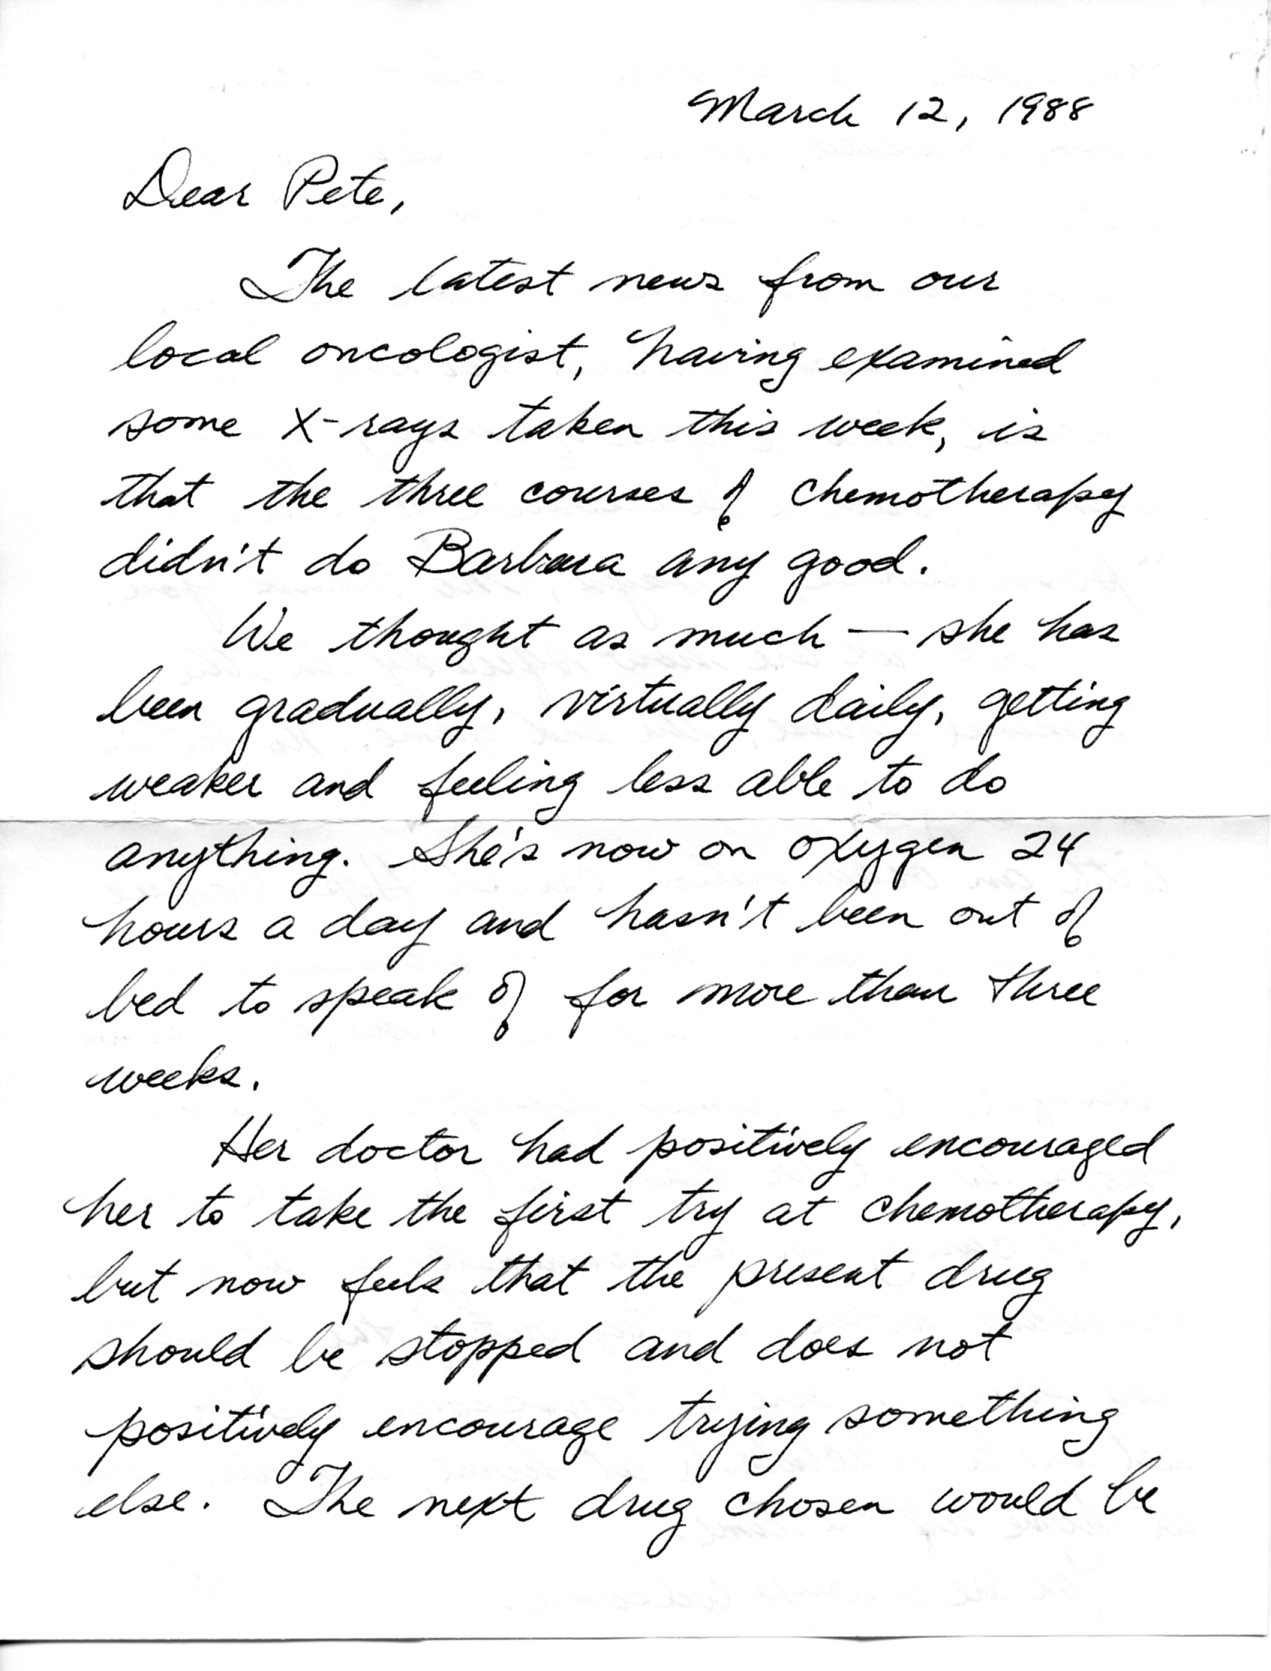 March 12, 1988
Dear Pete,
The latest news from our
local oncologist, having examined
some X-rays taken this week, is
that the three courses of chemotherapy
didn't do Barbara any good.
We thought as much — she has
been gradually, virtually daily, getting
weaker and feeling less able to do
anything. She's now on oxygen 24
hours a day and hasn't been out of
bed to speak of for more than three
weeks.
Her doctor had positively encouraged
her to take the first try at chemotherapy,
but now feels that the present drug
should be stopped and does not
positively encourage trying something
else. The next drug chosen would be